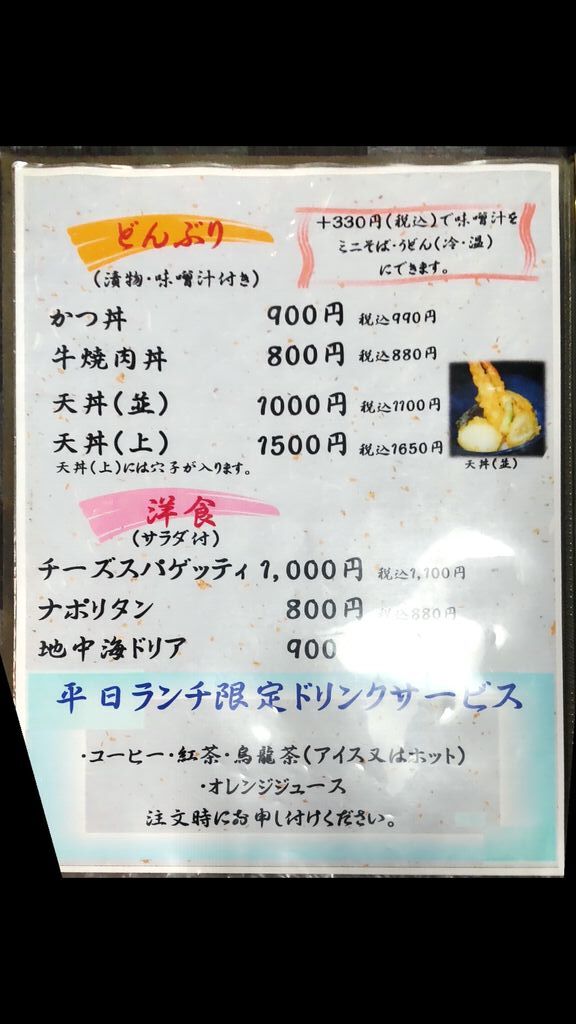 どんぶり
(漬物・味噌汁付き)
+330円(税込)で味噌汁を
ミニそば・うどん(冷・温)
にできます。
かつ丼 900円 税込990円
牛焼肉丼 800円 税込880円
天丼(並) 1000円 税込1100円
天丼(上) 1500円 税込1650円
天丼(上)には穴子が入ります。
天丼(並)
洋食
(サラダ付)
チーズスパゲッティ 1,000円 税込1,100円
ナポリタン 800円 税込880円
地中海ドリア 900
平日ランチ限定ドリンクサービス
・コーヒー・紅茶・烏龍茶(アイス又はホット)
・オレンジジュース
注文時にお申し付けください。